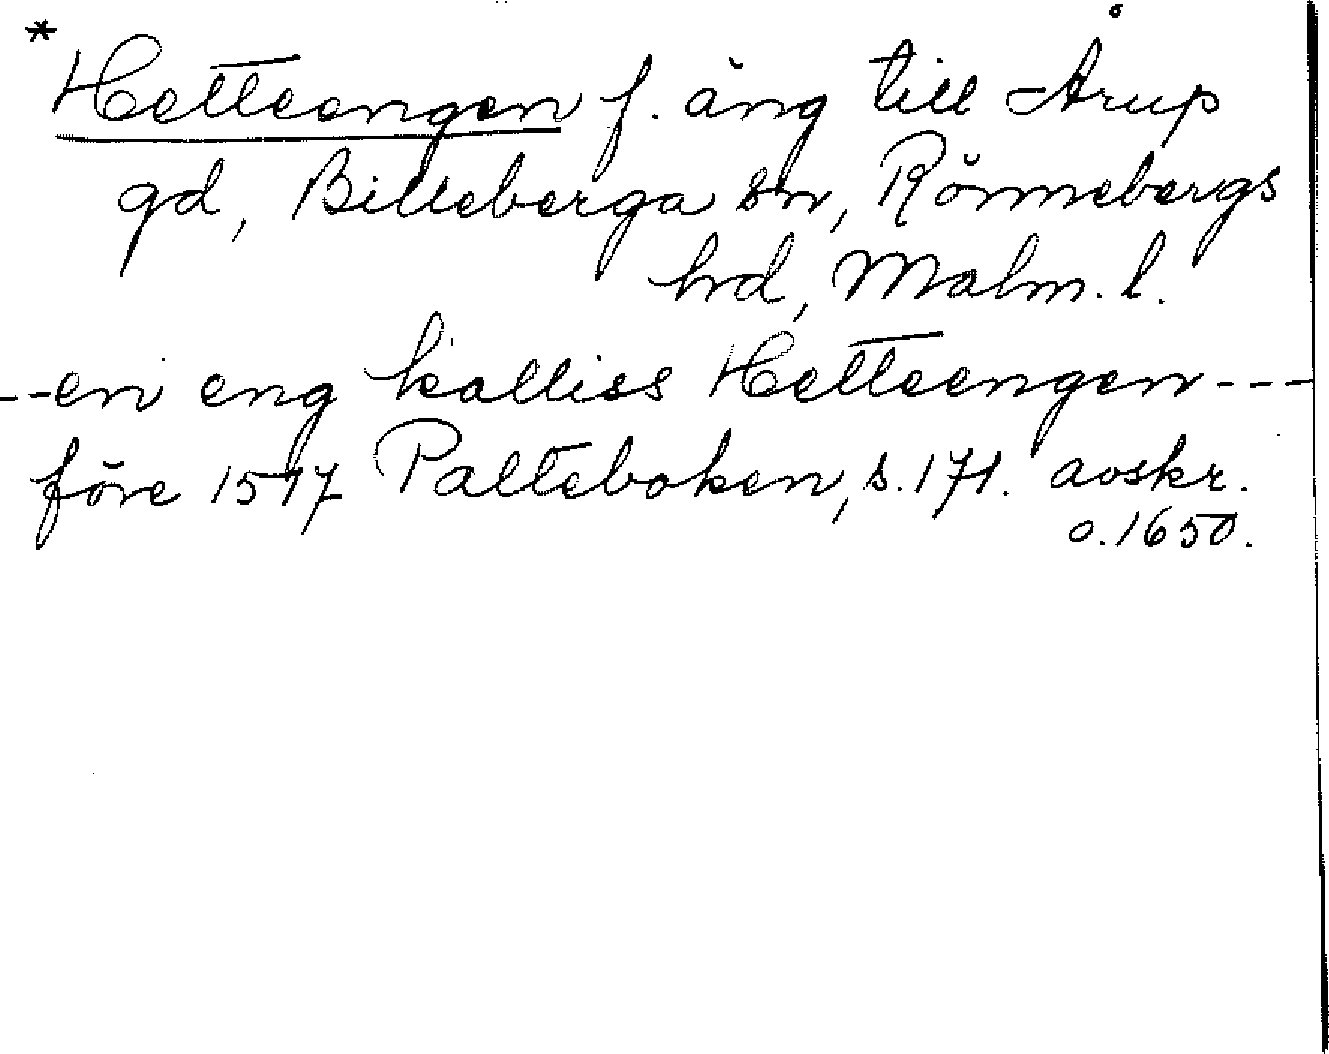 * Hetteengen f. äng till Årup
gd, Billeberga sn, Rönnebergs
hrd, Malm. l.
---en eng kalliss Hetteengen---
före 1517 Palteboken, s. 171. avskr.
o. 1650.